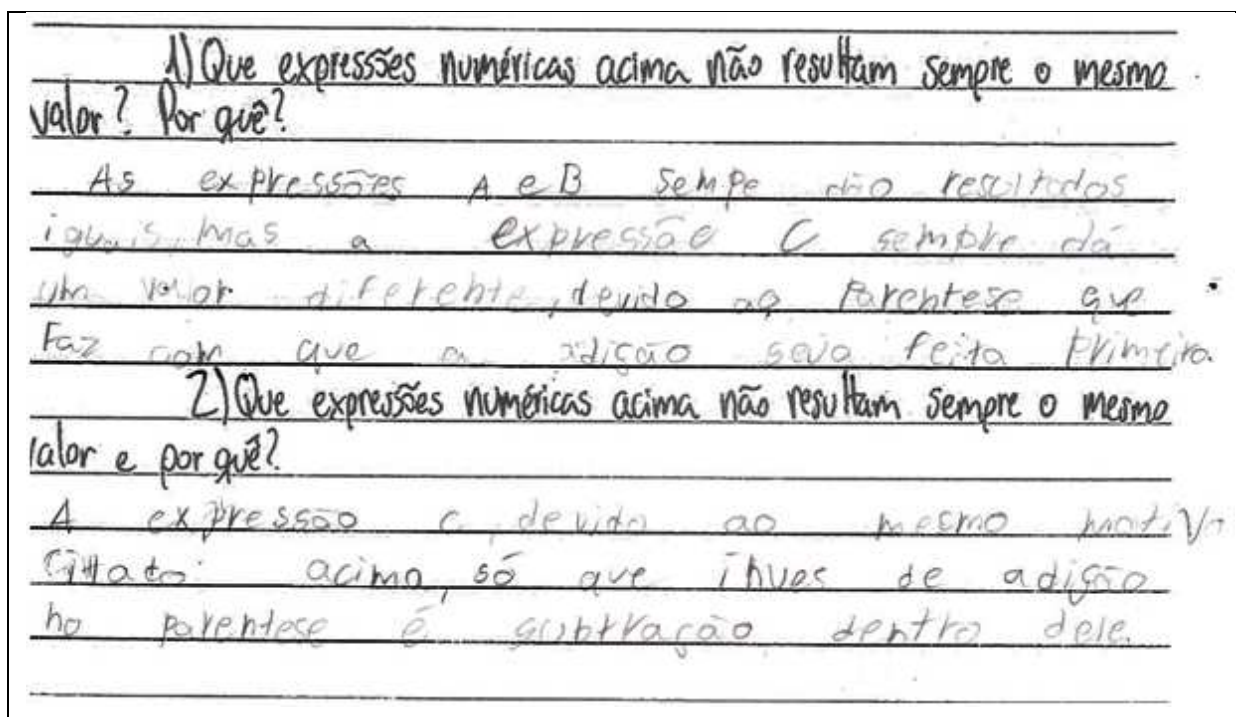 1) Que expressões numéricas acima não resultam sempre o mesmo
valor? Por quê?
As expressões A e B sempe dão resultados
iguais, mas a expressão C sempre dá
um valor diferente, devido ao parentese que
Faz com que a adição seja feita primeiro.
2) Que expressões numéricas acima não resultam sempre o mesmo
valor e por quê?
A expressão C, devido ao mesmo motivo
acima, só que invés de adição
no parentese é subtração dentro dele.